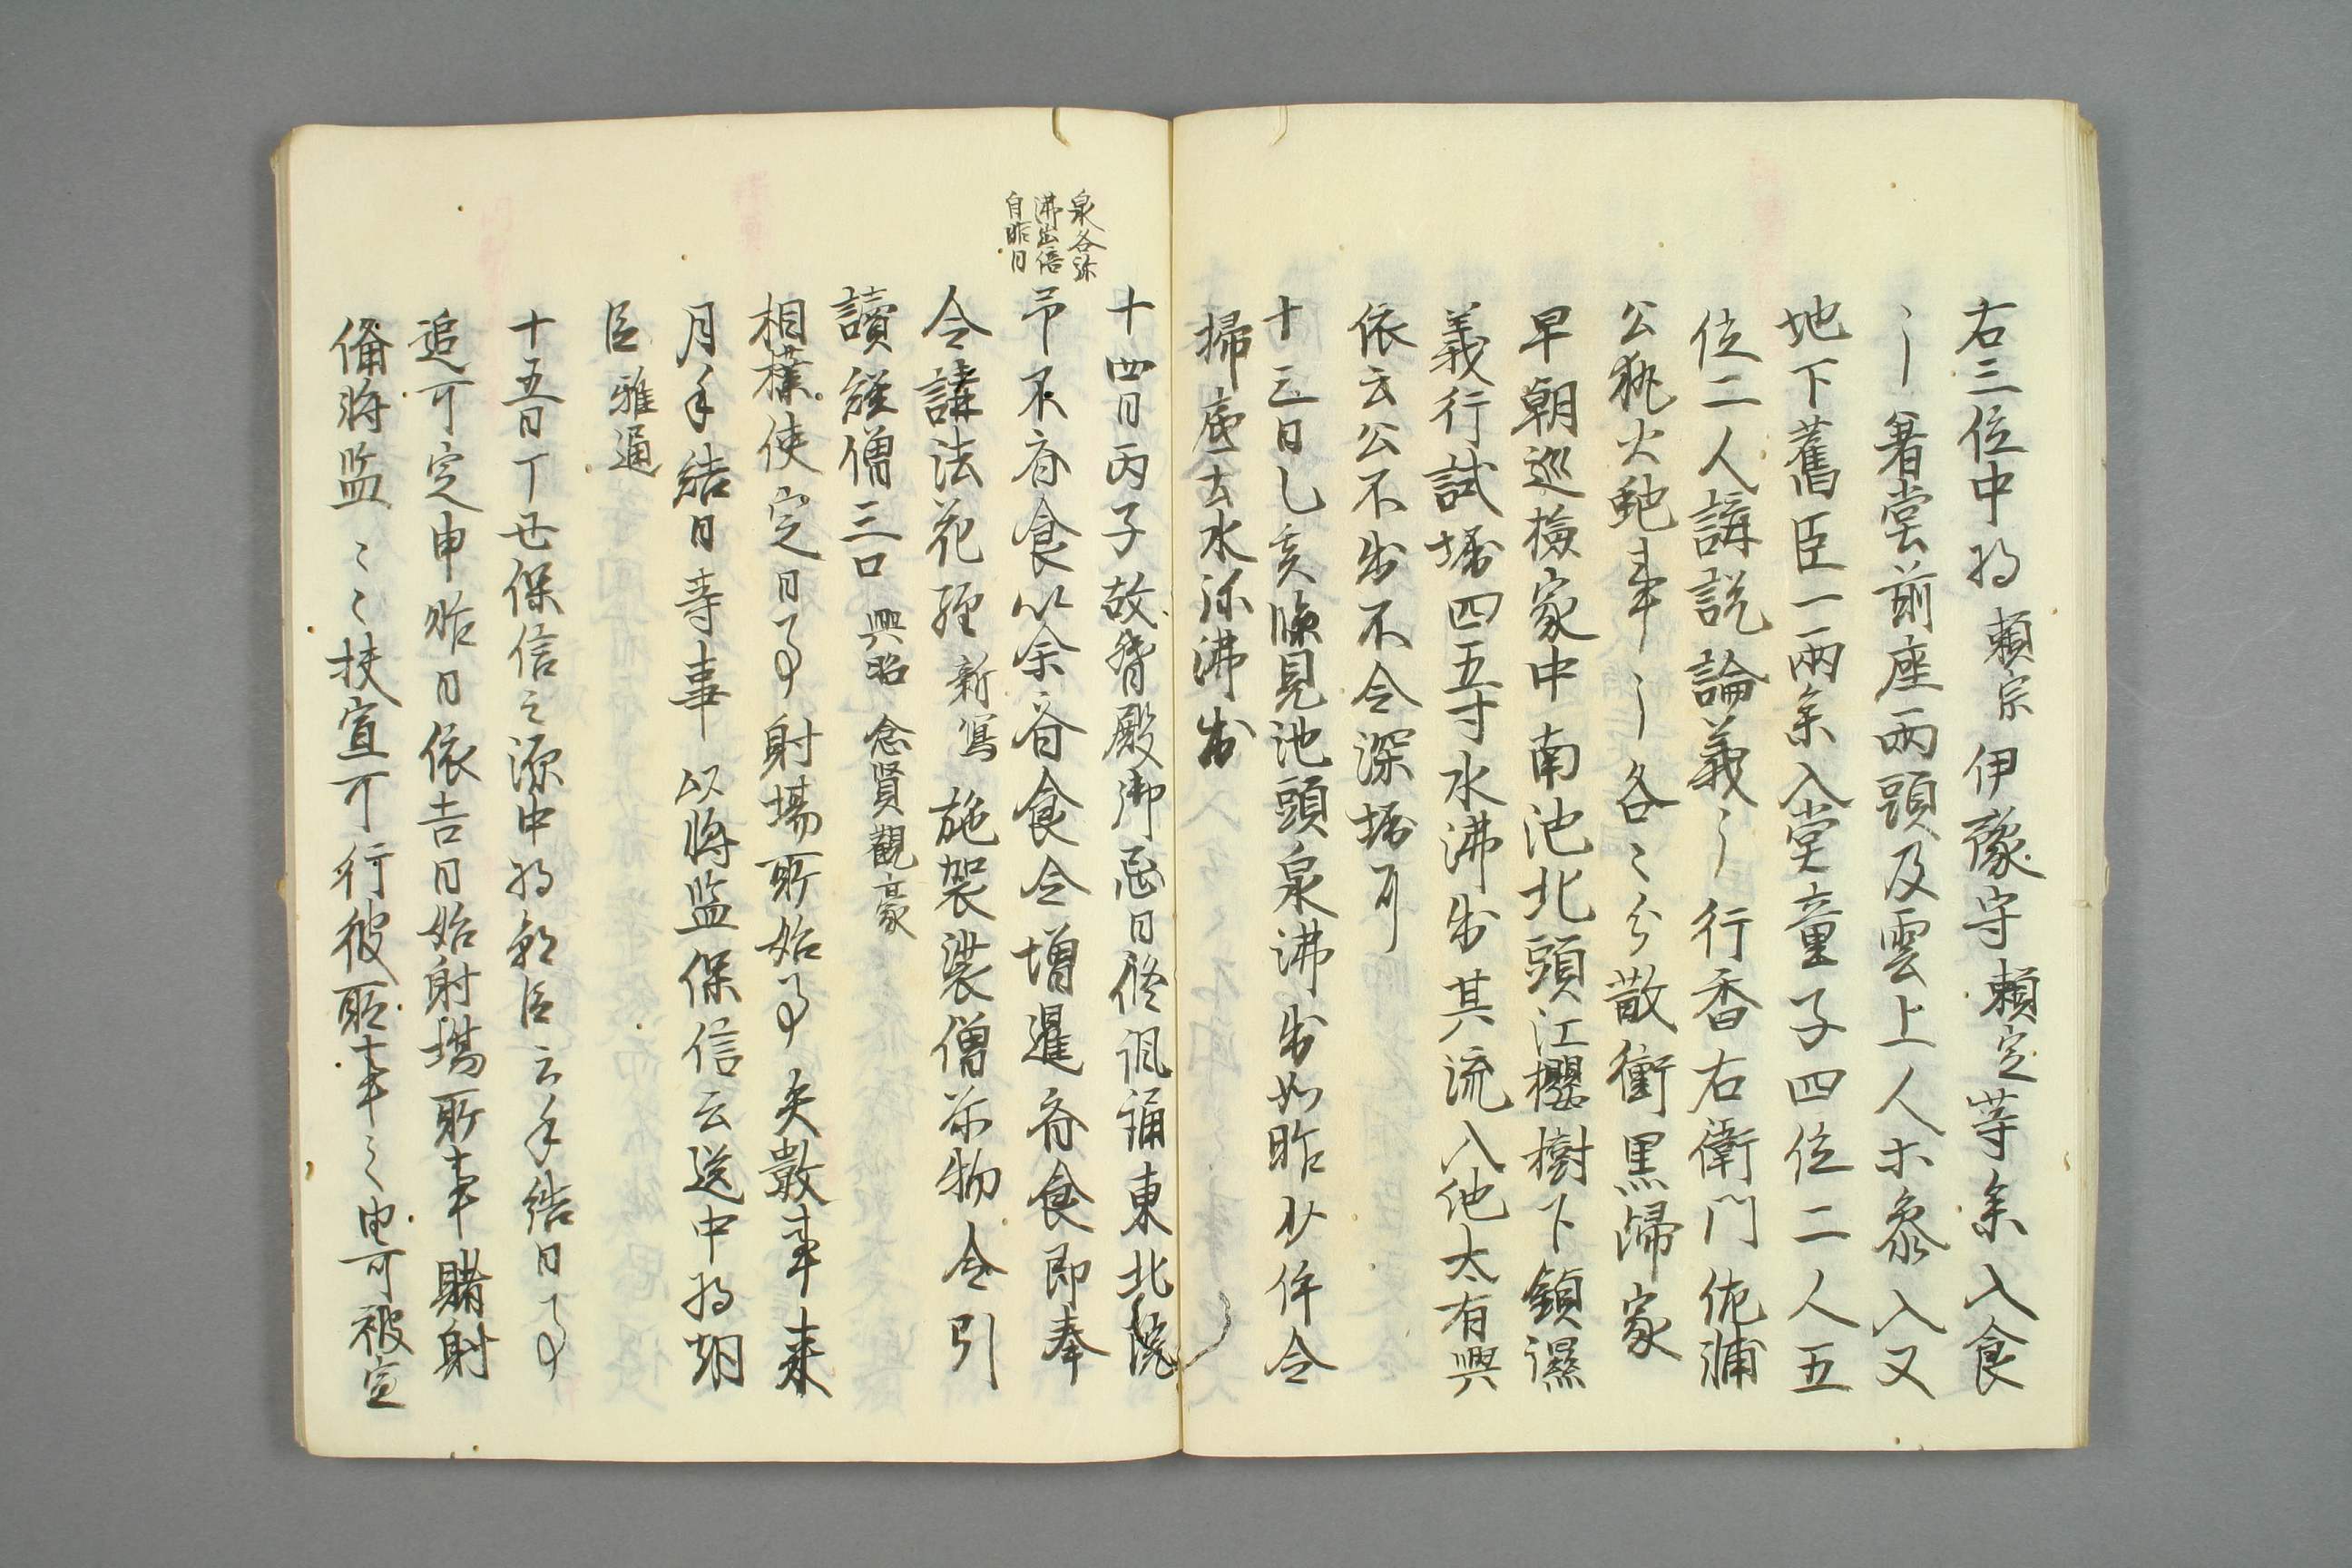 右三位中将頼宗伊豫守頼定等参入食
〻著堂前座両頭及雲上人ホ参入又
地下舊臣一両参入堂童子四位二人五
位二人講説論義〻行香右衛門佐浦
公執火虵事〻各〻分散衝黒歸家
早朝巡検家中南池北頭江櫻樹下鎮濕
義行試堀四五寸水沸出其流入池太有興
依云公不出不令深堀耳
十三日乙亥臨見池頭泉沸出如昨以件令
掃底云水弥沸出
泉各弥
沸出倍
自昨日
十四日丙子故督殿御忌日修諷誦東北院
予不斎食以余斎食令増暹斎食即奉
令講法花経新寫施袈裟僧前物令引
讀経僧三口興昭念賢観豪
相撲使定日事射場所始事矢数事来
月手結日等事以将監保信云送中将朝
臣雅通
十五日丁丑保信云源中将朝臣云手結日事
追可定申昨日依吉日始射場所事賭射
備将監〻〻扶宣可行彼所事之由可被宣